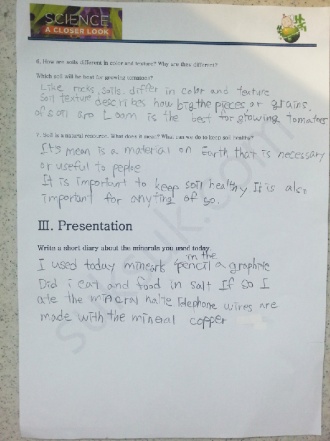 SCIENCE
A CLOSER LOOK
6. How are soils different in color and texture? Why are they different?
Which soil will be best for growing tomatoes?
Like rocks, soils, differ in color and texture
Soil texture describes how big the pieces, or grains,
of soil are Loam is the best for growing tomatoes
7. Soil is a natural resource. What does it mean? What can we do to keep soil healthy?
It's mean is a material on Earth that is necessary
or useful to peple
It is important to keep soil healthy It is also
important for anyting of so.
III. Presentation
Write a short diary about the minerals you used today.
I used today minerals pencil in the a graphite
Did i eat and food in salt If so I
ate the mineral halite telephone wires are
made with the mineral copper